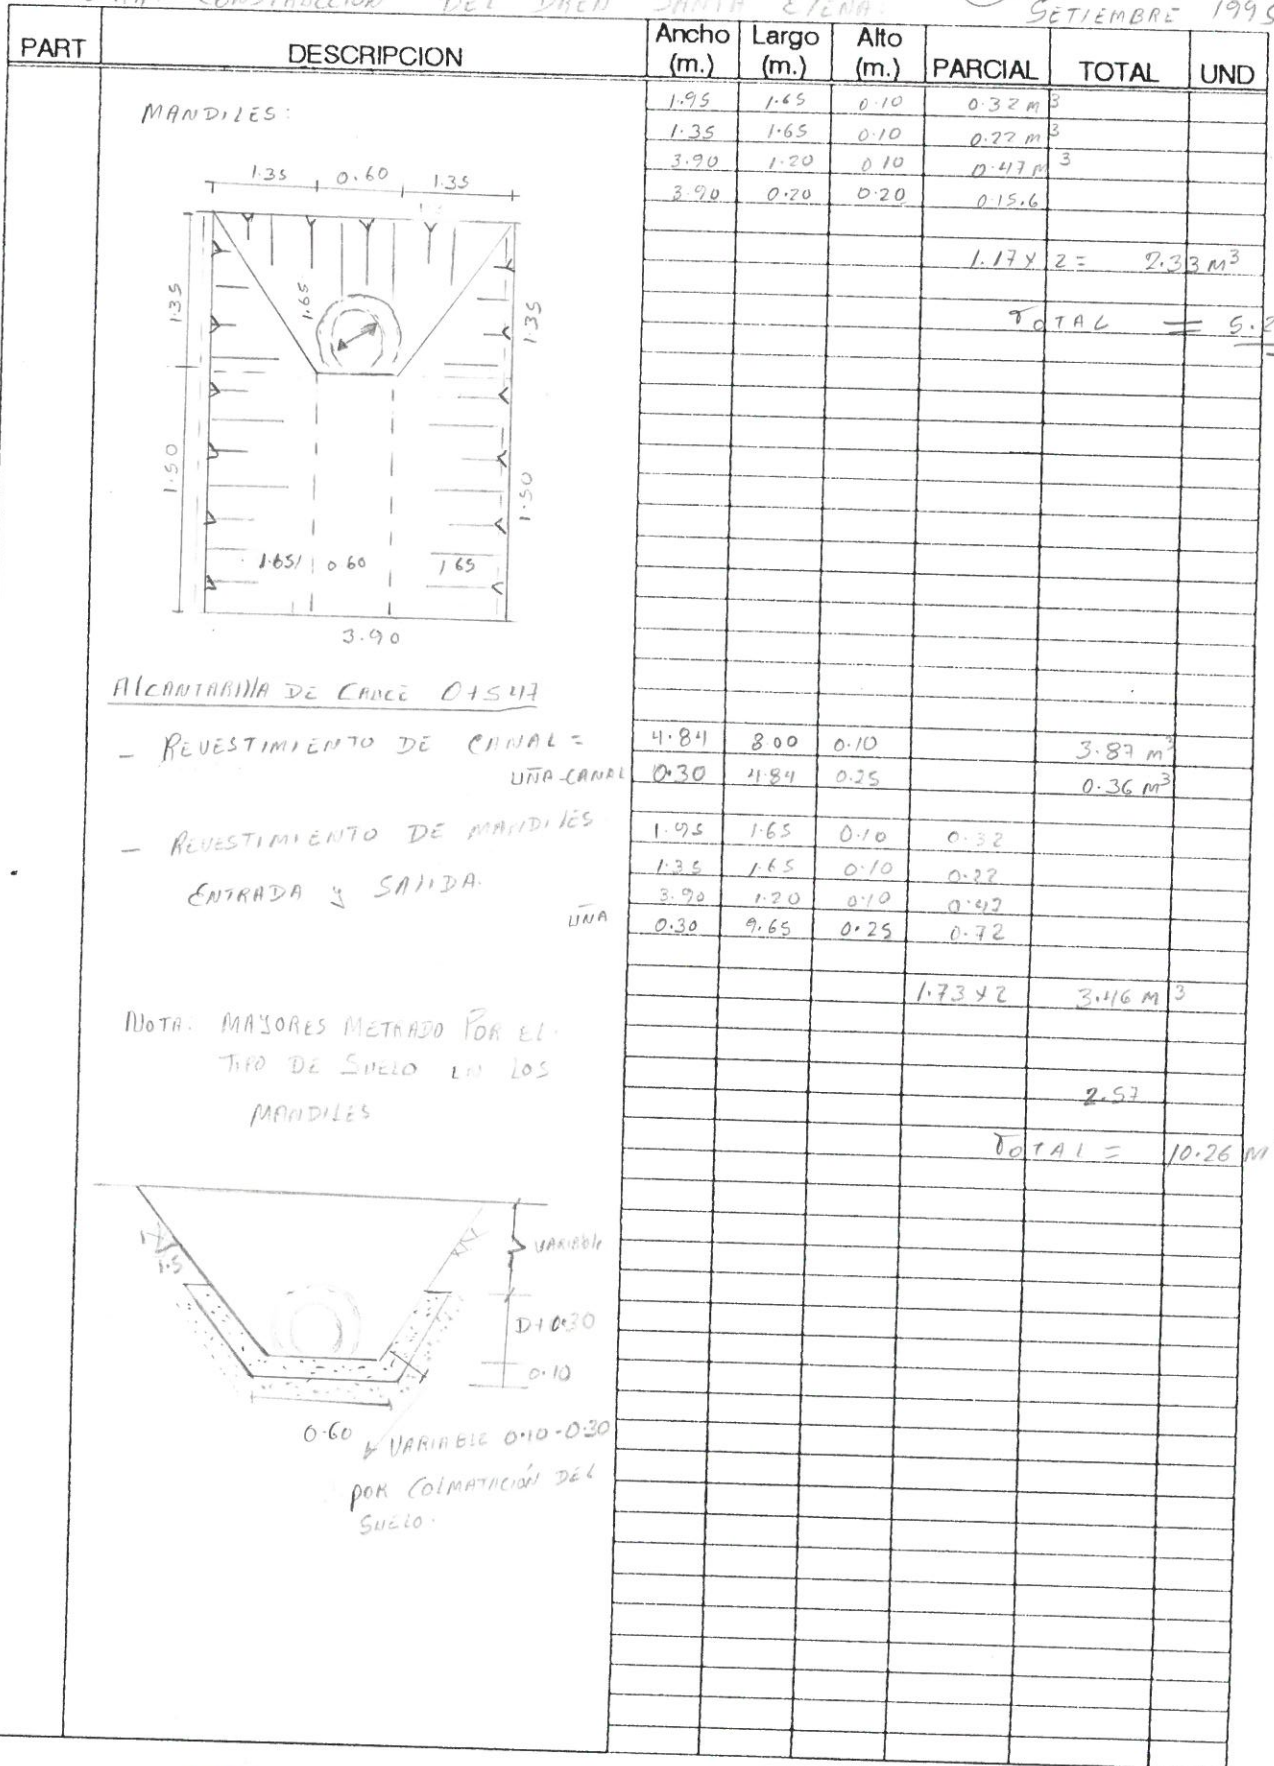 CONSTRUCCION DEL DREN SANTA ELENA. SETIEMBRE 1995
PART DESCRIPCION Ancho (m.) Largo (m.) Alto (m.) PARCIAL TOTAL UND
MANDILES: 1.95 1.65 0.10 0.32 m3
1.35 1.65 0.10 0.22 m3
3.90 1.20 0.10 0.47 m3
3.90 0.20 0.20 0.15.6
1.17 x 2 = 2.33 M3
TOTAL = 5.2
1.35 0.60 1.35
1.35 1.65 1.35
1.50 1.50
1.65 0.60 1.65
3.90
AlCANTARIllA DE CAUCE 0+547
- REVESTIMIENTO DE CANAL = 4.84 8.00 0.10 3.87 m3
UÑA-CANAL 0.30 4.84 0.25 0.36 m3
- REVESTIMIENTO DE MANDILES 1.95 1.65 0.10 0.32
1.35 1.65 0.10 0.22
ENTRADA y SALIDA. 3.90 1.20 0.10 0.47
UÑA 0.30 9.65 0.25 0.72
1.73 x 2 3.46 M3
NOTA: MAYORES METRADO POR EL
TIPO DE SUELO EN LOS
MANDILES 2.57
TOTAL = 10.26 M
1
1.5
VARIABLE
D+0.30
0.10
0.60
VARIABLE 0.10-0.30
POR COLMATACIÓN DEL
SUELO.